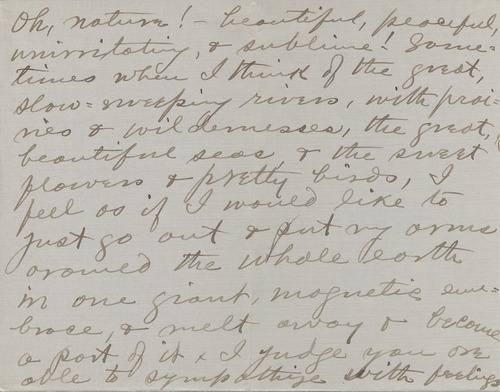 Oh, nature! – beautiful, peaceful,
unirritating, & sublime! Some=
times when I think of the great,
slow=sweeping rivers, with prai-
ries & wildernesses, the great,
beautiful seas, & the sweet
flowers & pretty birds, I
feel as if I would like to
just go out & put my arms
around the whole earth
in one giant, magnetic em=
brace, & melt away & become
a part of it & I judge you are
able to sympathize with feelings